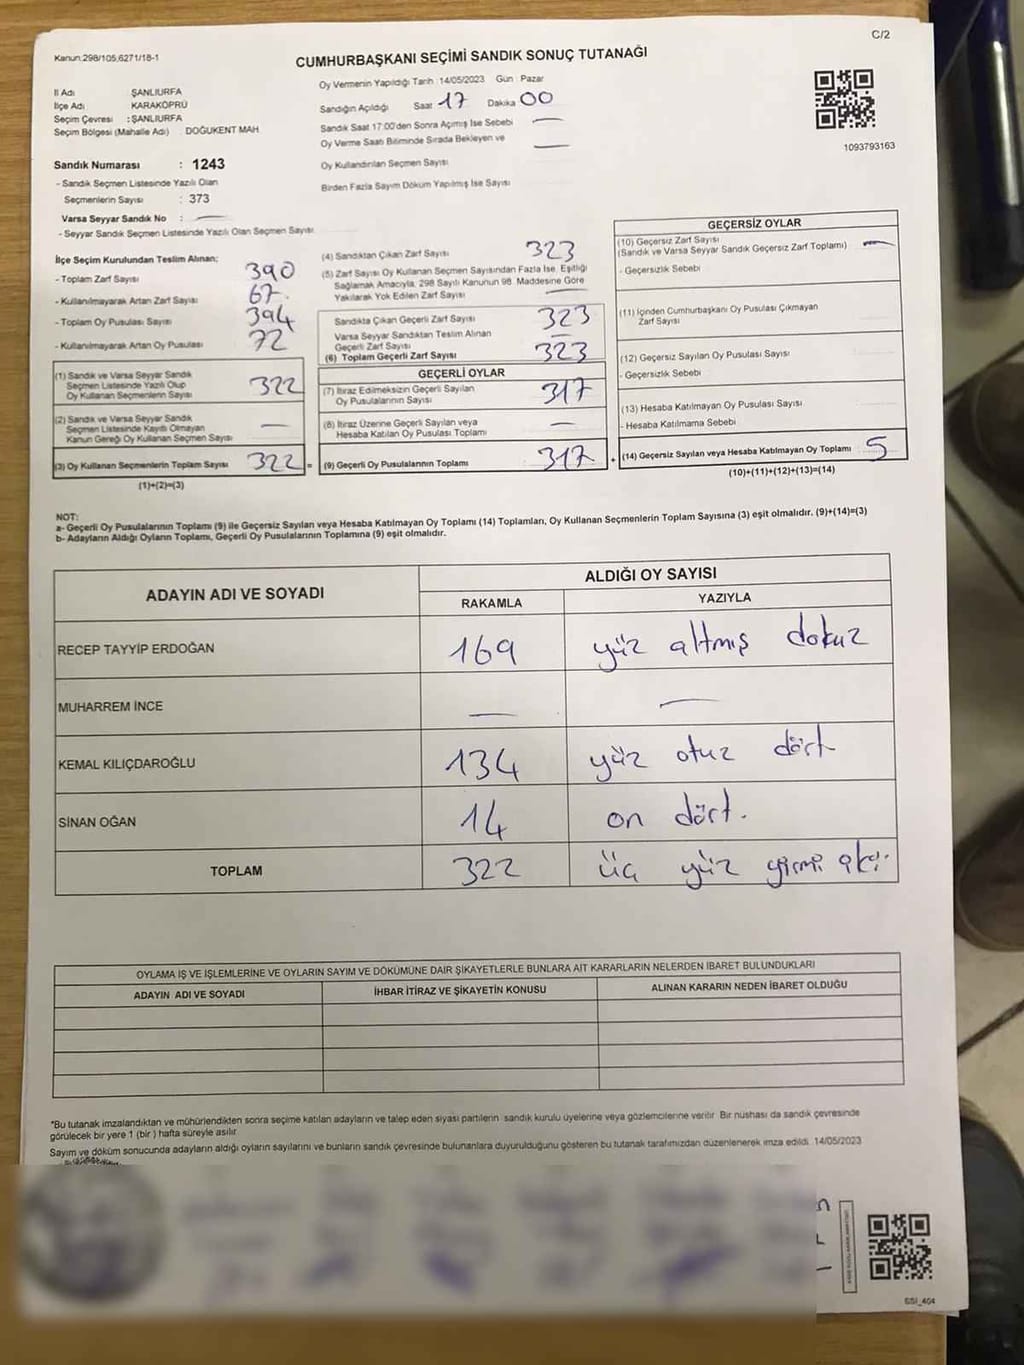 C/2
Kanun:298/105,6271/18-1
CUMHURBAŞKANI SEÇİMİ SANDIK SONUÇ TUTANAĞI
İl Adı ŞANLIURFA
İlçe Adı KARAKÖPRÜ
Seçim Çevresi : ŞANLIURFA
Seçim Bölgesi (Mahalle Adı) DOĞUKENT MAH
Sandık Numarası : 1243
- Sandık Seçmen Listesinde Yazılı Olan
Seçmenlerin Sayısı : 373
Varsa Seyyar Sandık No : —
- Seyyar Sandık Seçmen Listesinde Yazılı Olan Seçmen Sayısı:
Oy Vermenin Yapıldığı Tarih :14/05/2023 Gün : Pazar
Sandığın Açıldığı Saat 17 Dakika 00
Sandık Saat 17:00'den Sonra Açımış İse Sebebi —
Oy Verme Saati Bitiminde Sırada Bekleyen ve —
Oy Kullandırılan Seçmen Sayısı
Birden Fazla Sayım Döküm Yapılmış İse Sayısı
1093793163
İlçe Seçim Kurulundan Teslim Alınan;
- Toplam Zarf Sayısı 390
- Kullanılmayarak Artan Zarf Sayısı 67
- Toplam Oy Pusulası Sayısı 394
- Kullanılmayarak Artan Oy Pusulası 72
(1) Sandık ve Varsa Seyyar Sandık
Seçmen Listesinde Yazılı Olup
Oy Kullanan Seçmenlerin Sayısı 322
(2) Sandık ve Varsa Seyyar Sandık
Seçmen Listesinde Kayıtlı Olmayan
Kanun Gereği Oy Kullanan Seçmen Sayısı —
(3) Oy Kullanan Seçmenlerin Toplam Sayısı 322 =
(1)+(2)=(3)
(4) Sandıktan Çıkan Zarf Sayısı 323
(5) Zarf Sayısı Oy Kullanan Seçmen Sayısından Fazla İse, Eşitliği
Sağlamak Amacıyla, 298 Sayılı Kanunun 98. Maddesine Göre
Yakılarak Yok Edilen Zarf Sayısı —
Sandıkta Çıkan Geçerli Zarf Sayısı 323
Varsa Seyyar Sandıktan Teslim Alınan
Geçerli Zarf Sayısı —
(6) Toplam Geçerli Zarf Sayısı 323
GEÇERLİ OYLAR
(7) İtiraz Edilmeksizin Geçerli Sayılan
Oy Pusulalarının Sayısı 317
(8) İtiraz Üzerine Geçerli Sayılan veya
Hesaba Katılan Oy Pusulası Toplamı —
(9) Geçerli Oy Pusulalarının Toplamı 317 +
GEÇERSİZ OYLAR
(10) Geçersiz Zarf Sayısı
(Sandık ve Varsa Seyyar Sandık Geçersiz Zarf Toplamı) —
- Geçersizlik Sebebi
(11) İçinden Cumhurbaşkanı Oy Pusulası Çıkmayan
Zarf Sayısı
(12) Geçersiz Sayılan Oy Pusulası Sayısı
- Geçersizlik Sebebi
(13) Hesaba Katılmayan Oy Pusulası Sayısı
- Hesaba Katılmama Sebebi
(14) Geçersiz Sayılan veya Hesaba Katılmayan Oy Toplamı 5
(10)+(11)+(12)+(13)=(14)
NOT:
a- Geçerli Oy Pusulalarının Toplamı (9) ile Geçersiz Sayılan veya Hesaba Katılmayan Oy Toplamı (14) Toplamları, Oy Kullanan Seçmenlerin Toplam Sayısına (3) eşit olmalıdır. (9)+(14)=(3)
b- Adayların Aldığı Oyların Toplamı, Geçerli Oy Pusulalarının Toplamına (9) eşit olmalıdır.
ADAYIN ADI VE SOYADI ALDIĞI OY SAYISI
RAKAMLA YAZIYLA
RECEP TAYYİP ERDOĞAN 169 yüz altmış dokuz
MUHARREM İNCE — —
KEMAL KILIÇDAROĞLU 134 yüz otuz dört
SİNAN OĞAN 14 on dört.
TOPLAM 322 üç yüz yirmi iki
OYLAMA İŞ VE İŞLEMLERİNE VE OYLARIN SAYIM VE DÖKÜMÜNE DAİR ŞİKAYETLERLE BUNLARA AİT KARARLARIN NELERDEN İBARET BULUNDUKLARI
ADAYIN ADI VE SOYADI İHBAR İTİRAZ VE ŞİKAYETİN KONUSU ALINAN KARARIN NEDEN İBARET OLDUĞU
*Bu tutanak imzalandıktan ve mühürlendikten sonra seçime katılan adayların ve talep eden siyasi partilerin sandık kurulu üyelerine veya gözlemcilerine verilir. Bir nüshası da sandık çevresinde
görülecek bir yere 1 (bir) hafta süreyle asılır
Sayım ve döküm sonucunda adayların aldığı oyların sayılarını ve bunların sandık çevresinde bulunanlara duyurulduğunu gösteren bu tutanak tarafımızdan düzenlenerek imza edildi. 14/05/2023